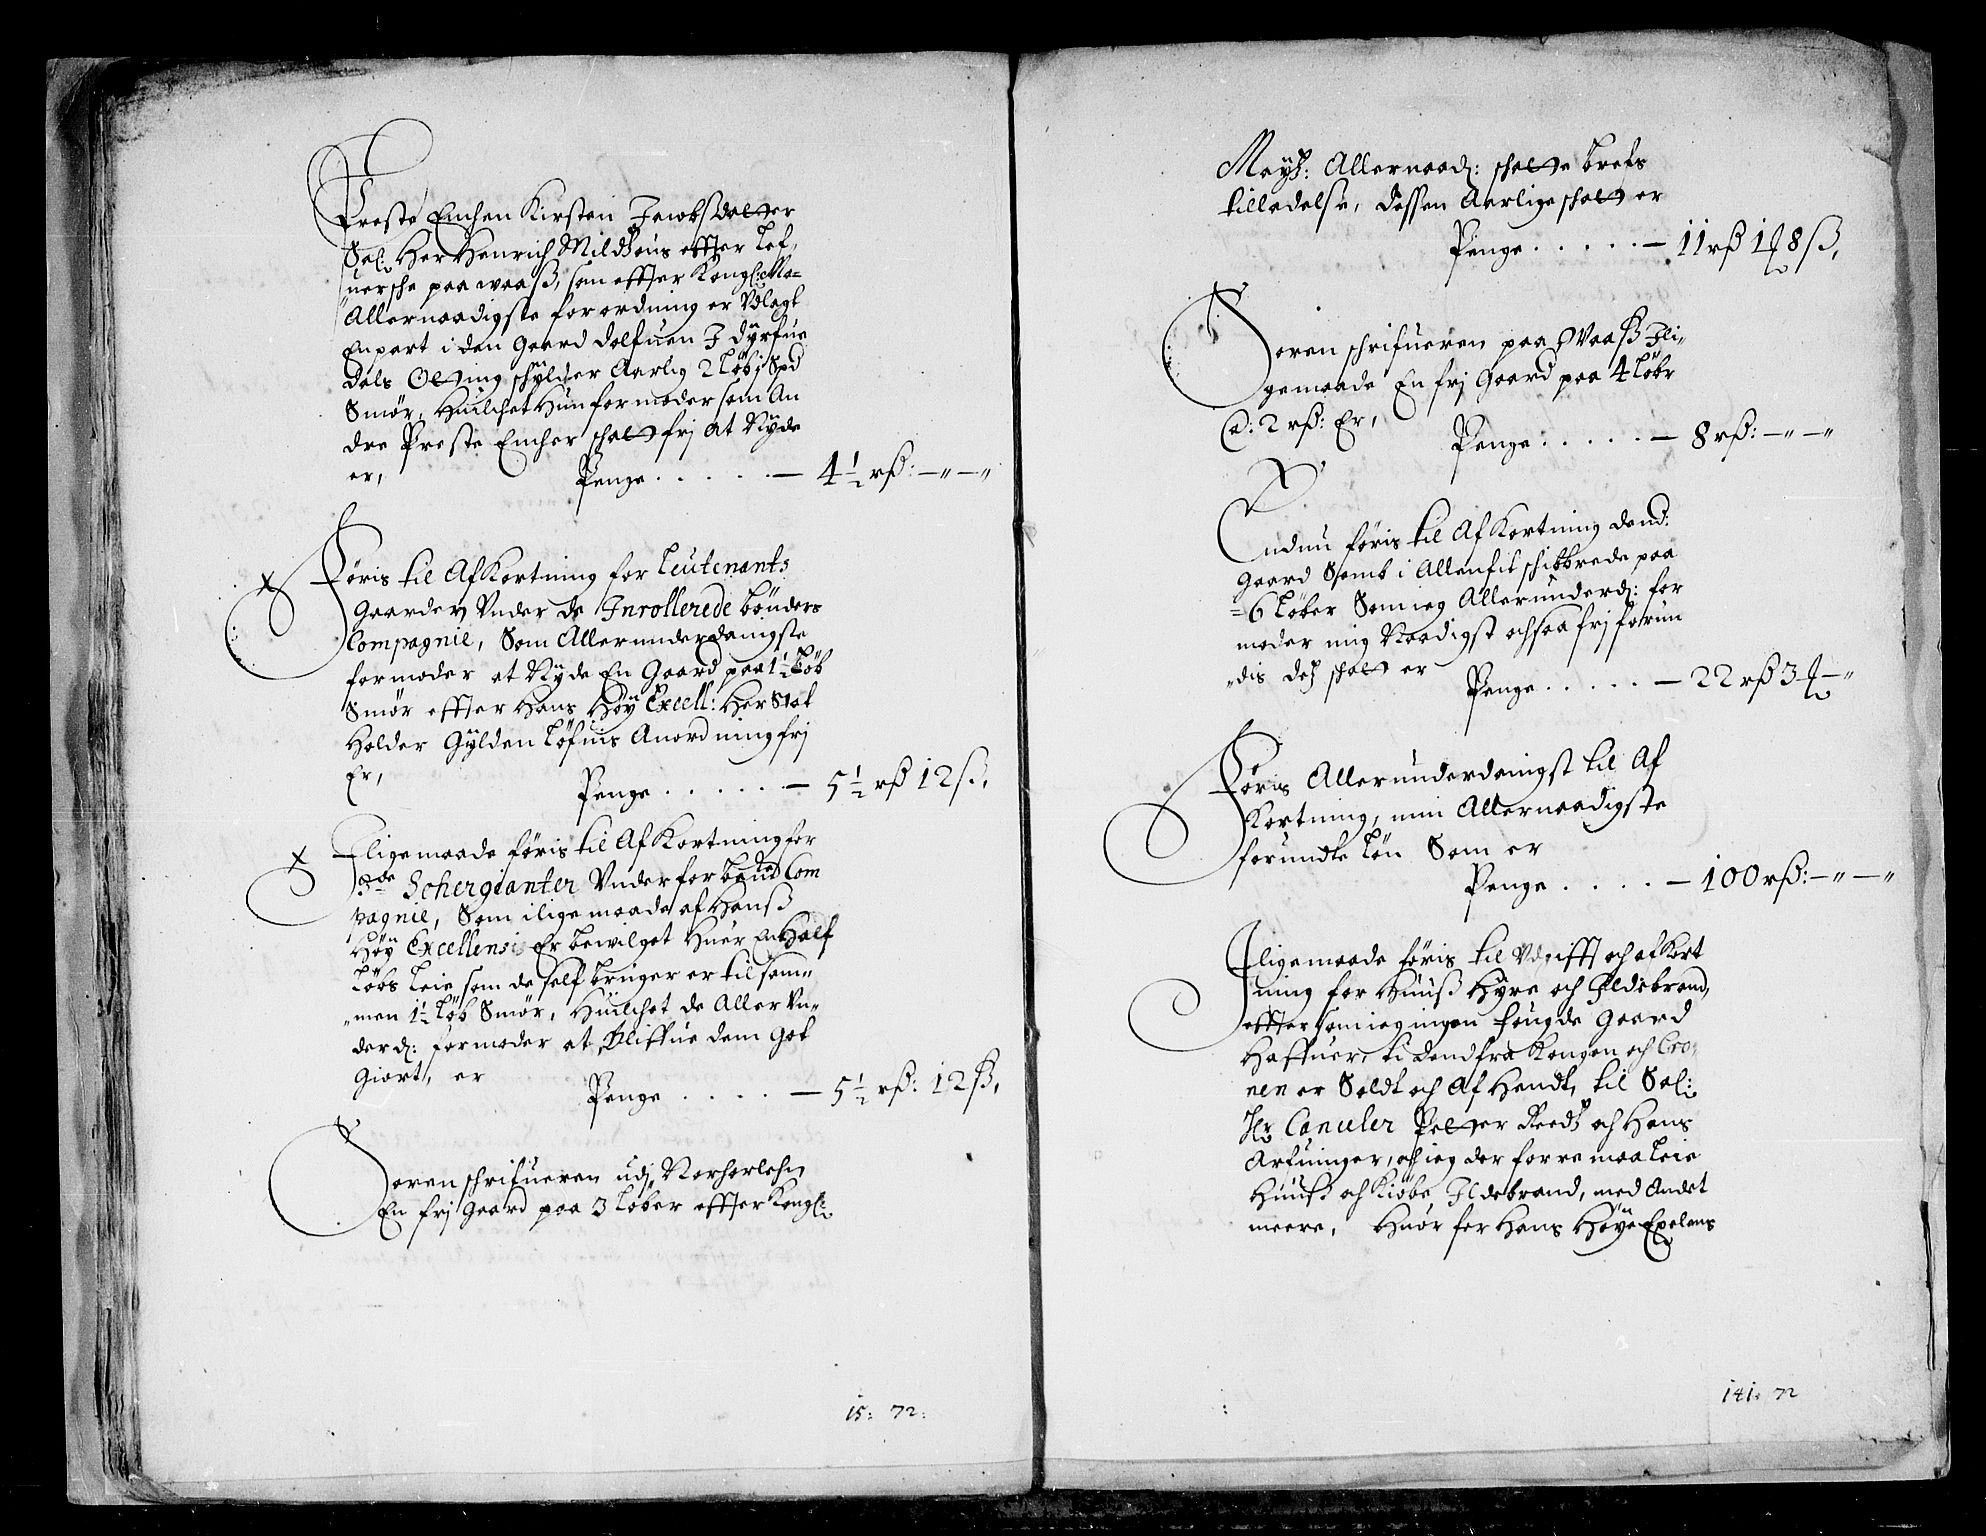 Preste Enchen Kirsten Jacobsdatter
Sal: Her Henrich Miltzous effter Lef„
uersche paa Waaß, som effter Kongl: Ma=
Allernaadigste forordning er Udlagt
En part i den Gaard Dolfuen I Dyrfue
Dals Otting schylder Aarlig 2 Løb 1 Spd
Smør, Huilchet Hun formoder som An
dre Preste Encher schall frj at Nyde
er, Penge . . . . . — 4½ rß: —„—„
Føris til Af Kortning for Leutenants
Gaarden Vnder de Inrollerede bønders
Compagnie, Som Allerunderdanigste
formoder at Nyde En Gaard paa 1½ Løb
Smør effter Hans Høy Excell: Her Stat
Holder Gyldenløfuis Anordning frj
Er, Penge . . . . . — 5½ rß 12 ß,
Iligemaade føris til Af Kortning for
3de Schergianter Vnder forbemte Com
pagnie, Som iligemaade af Hanß
Høy Excellensis Er bewilget Huer En Half
Løbs Leie som de self bruger er til sam„
„men 1½ Løb Smør, Huilchet de Aller Vn„
derd: formoder at bliffue dem Got
Giort, er
Penge . . . . — 5½ rß: 12 ß,
Soren schrifueren udj Norhorlehn
En frj Gaard paa 3 Løber effter Kongl:
15: 72:
Mayst: Allernaad: schatte brefs
tilladelse, dessen Aarlige schatt er
Penge . . . . . — 11 rß 1 ƒ 8 ß,
Soren schrifueren paa Waaß Ili„
gemaade En frj Gaard paa 4 Løbr
a: 2 rß: Er,
Penge . . . . . — 8 rß: —„—„
Endnu føris til Af Kortning dend:
Gaard Somb i Allenfit schibbrede paa
=6 Løber Som ieg Allerunderd: for
moder mig Naadigst ochsaa frj forun
„dis des schatt er
Penge . . . . . — 22 rß 3 ƒ —„
Føris Allerunderdanigst til Af
Kortning, min Allernaadigste
forundte Løn Som er
Penge . . . . — 100 rß: —„—„
Iligemaade føris til Vdgifft och af Kort
ning for Huuß Hyre och Ildebrand,
effter som ieg ingen fougde Gaard
Haffuer, ti dend fra Kongen och Cro„
nen er Soldt och Af Hendt, til Sal:
Hr Canceler Petter Reedtz och Hans
Arfuinger, och ieg der forre maa Leie
Huuß och Kiøbe Ildebrand, med Andet
meere, Huor for Hans Høye Exelens
141: 72